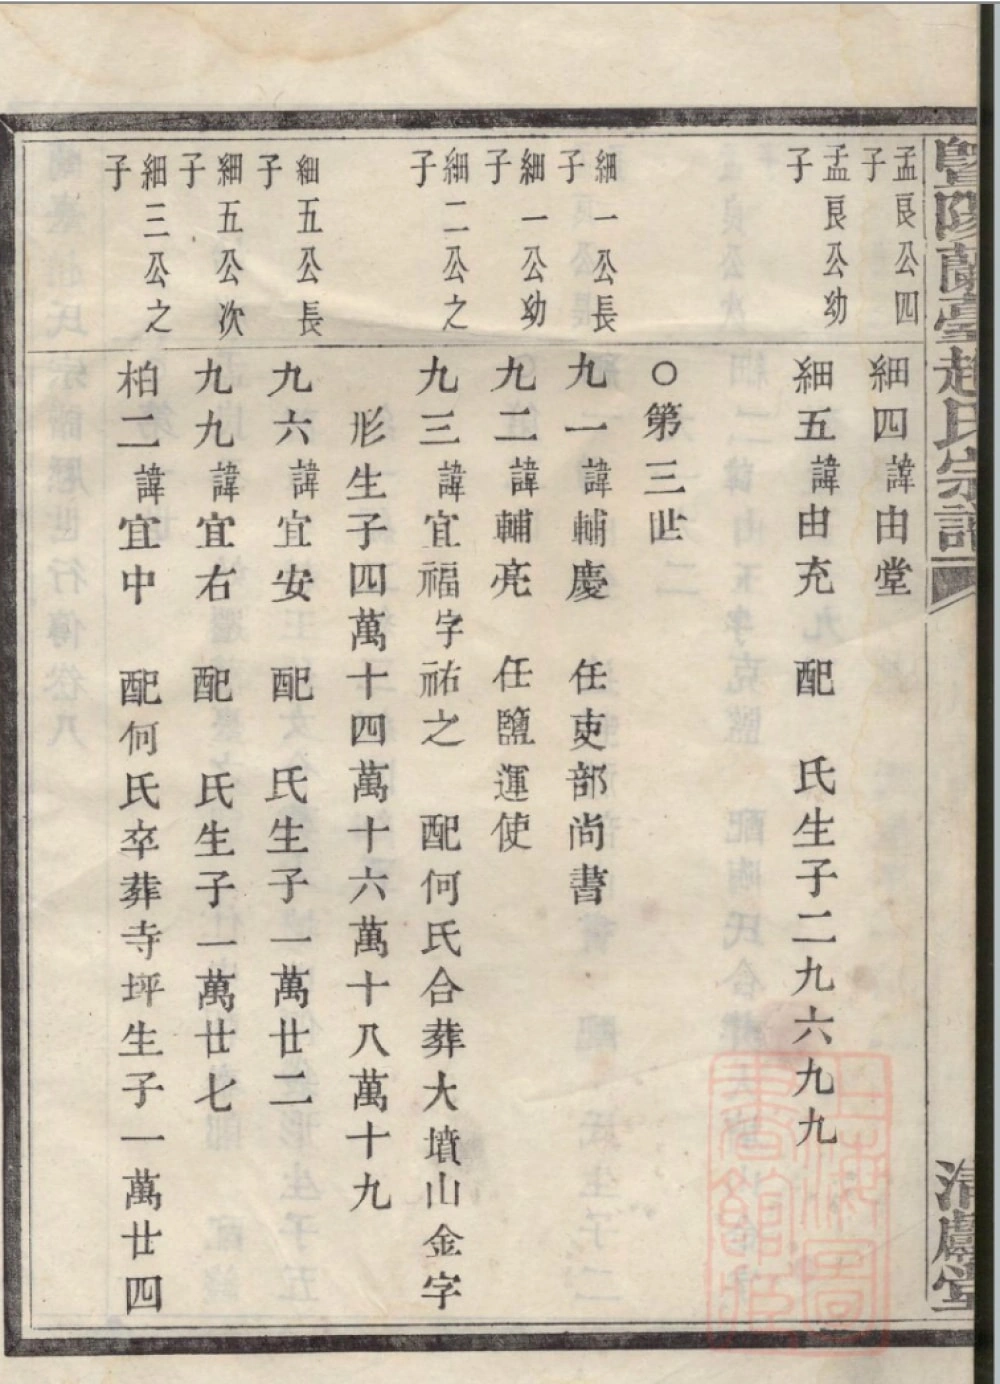 暨陽蘭臺趙氏宗譜
清慶堂
孟良公四子
細四諱由堂
孟良公幼子
細五諱由充 配 氏生子二九六九九
○第三世
細一公長子
九一諱輔慶 任吏部尚書
細一公幼子
九二諱輔亮 任鹽運使
細二公之子
九三諱宜福字祐之 配何氏合葬大墳山金字
形生子四萬十四萬十六萬十八萬十九
細五公長子
九六諱宜安 配 氏生子一萬廿二
細五公次子
九九諱宜右 配 氏生子一萬廿七
細三公之子
柏二諱宜中 配何氏卒葬寺坪生子一萬廿四